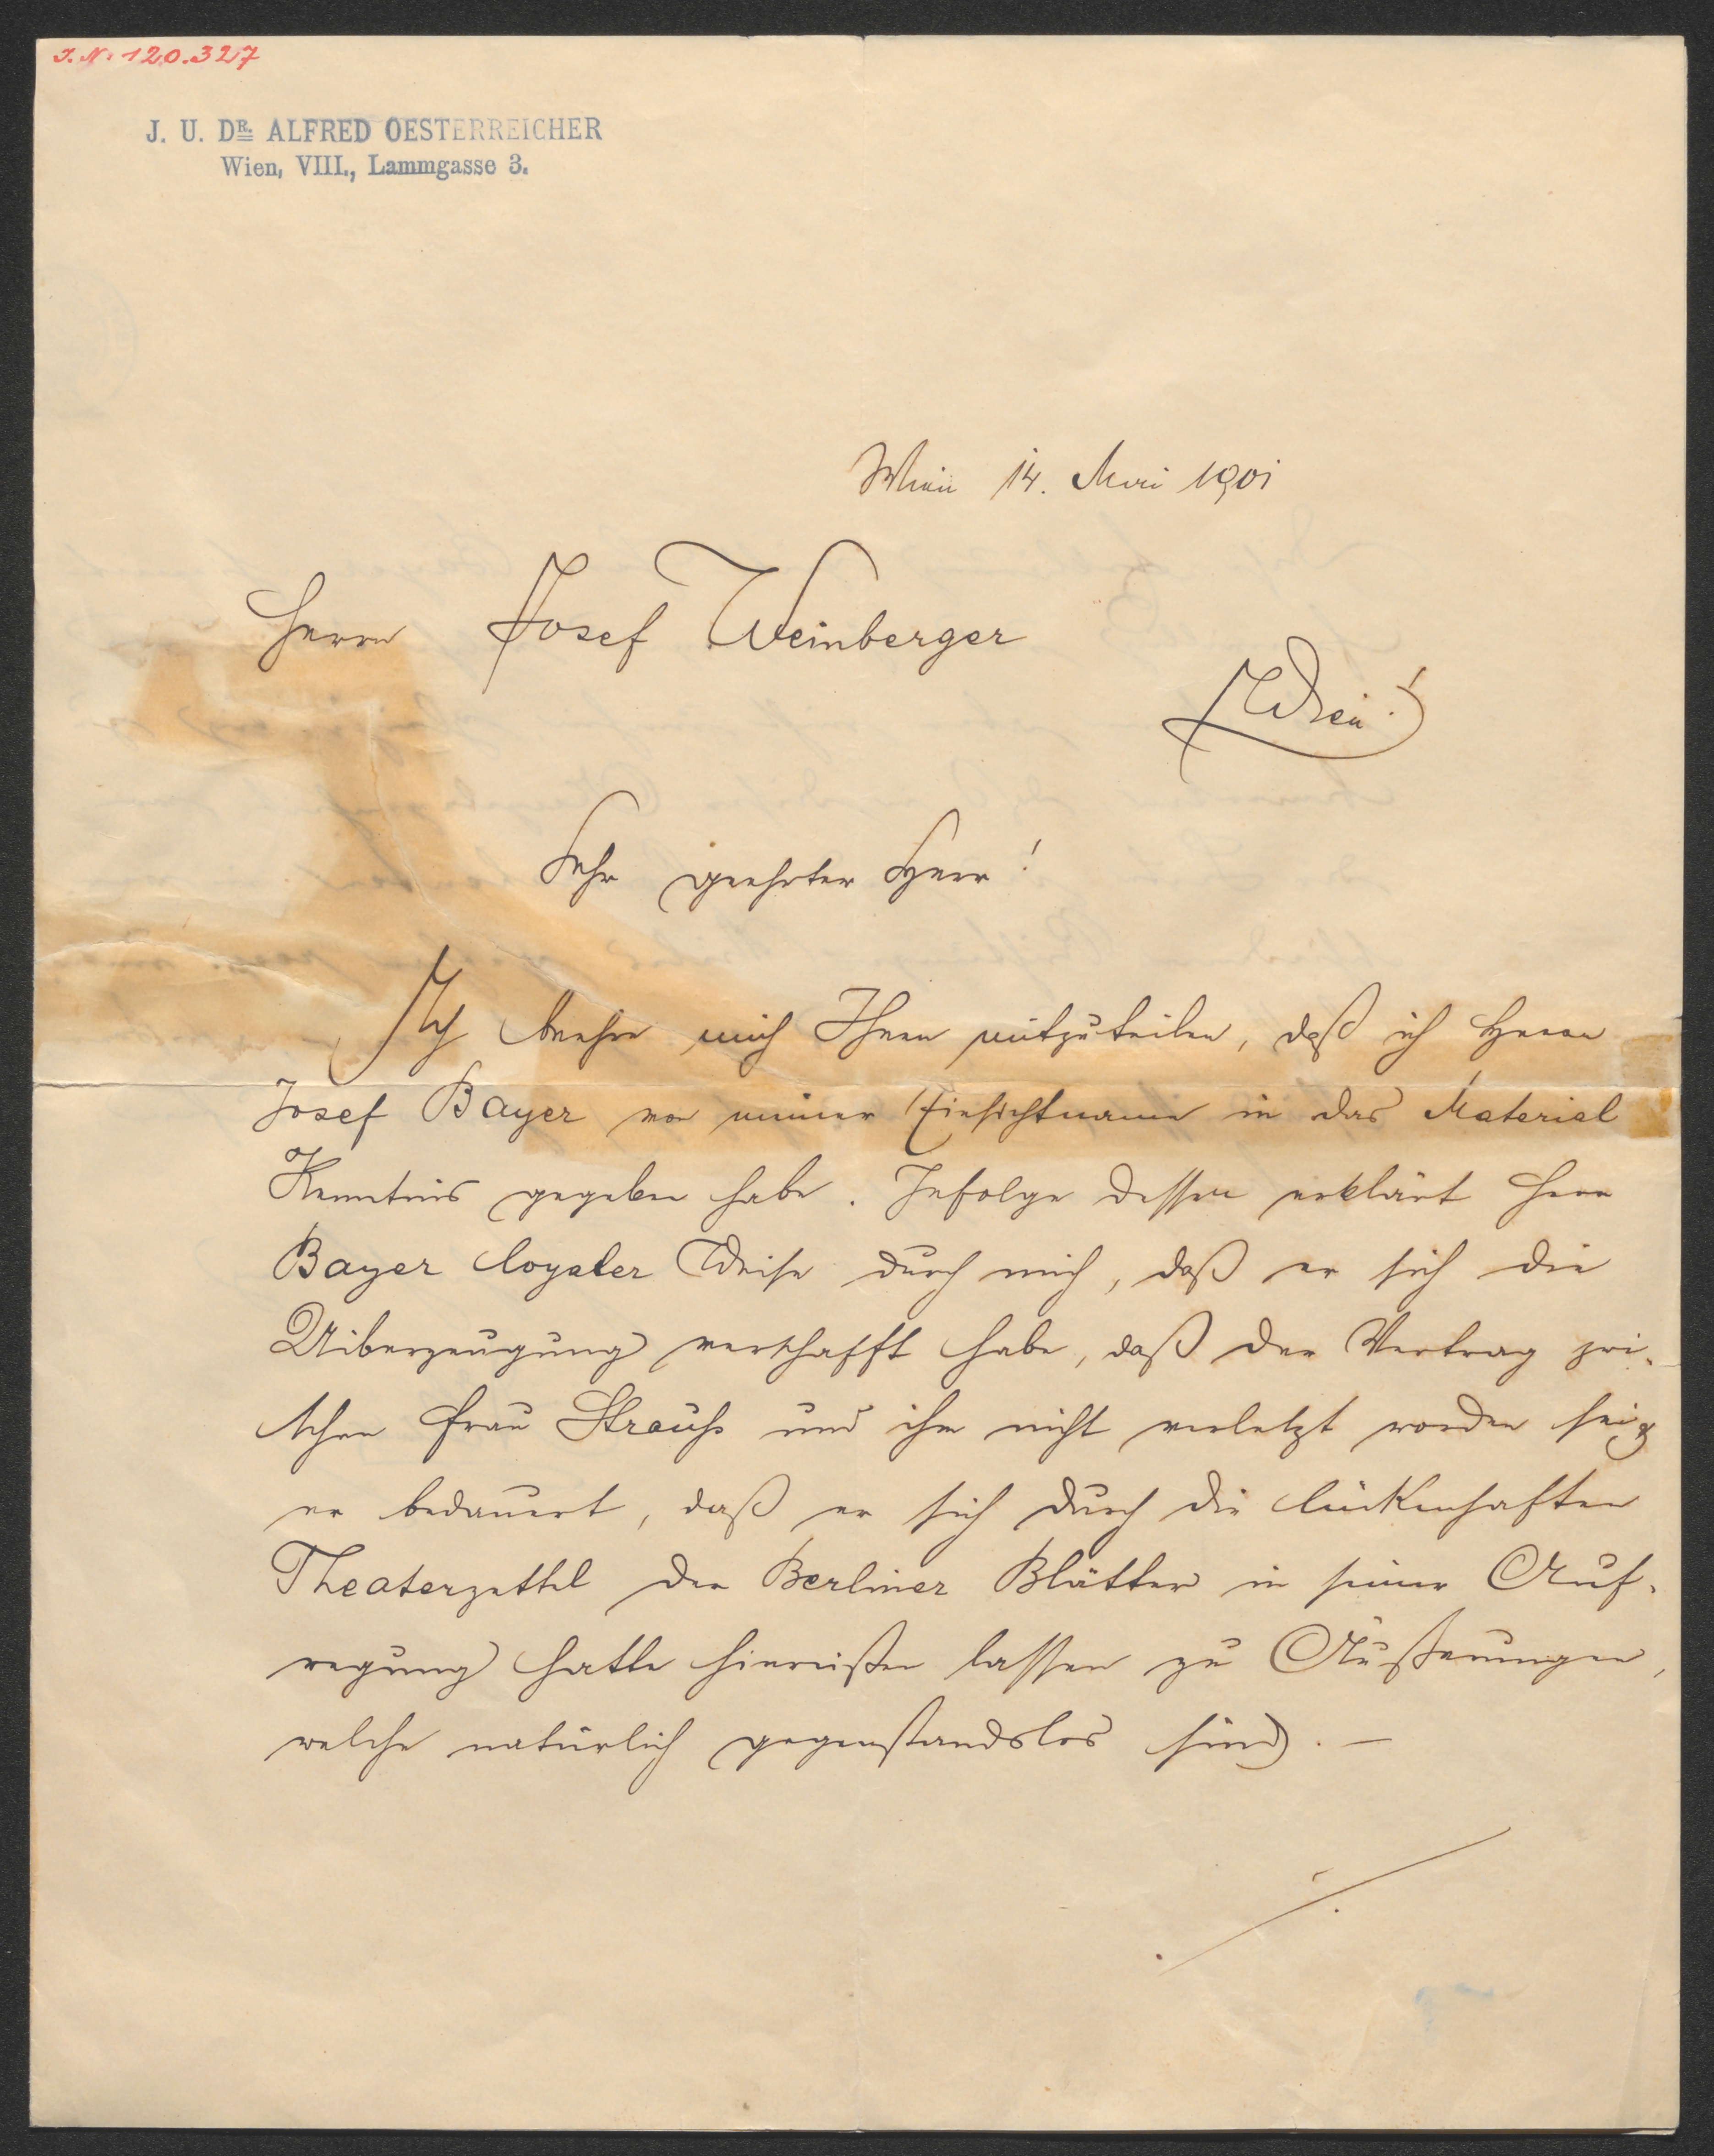 J. N. 120.327
J. U. DR. ALFRED OESTERREICHER
Wien, VIII., Lammgasse 3.
Wien 14. Mai 1901
Herrn Josef Weinberger
Wien!
Sehr geehrter Herr!
Ich beehre mich Ihnen mitzuteilen, daß ich Herrn
Josef Bayer von meiner Einsichtname in das Material
Kenntnis gegeben habe. Infolge dessen erklärt Herr
Bayer loyaler Weise durch mich, daß er sich die
Uiberzeugung verschafft habe, daß der Vertrag zwi-
schen Frau Strauß und ihm nicht verletzt worden sei;
er bedauert, daß er sich durch die lückenhaften
Theaterzettel der Berliner Blätter in seiner Auf-
regung hatte hinreißen lassen zu Äußerungen,
welche natürlich gegenstandslos sind. —
./.